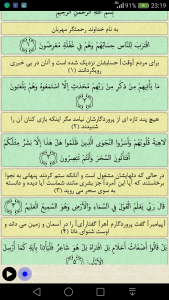 23:19
بِسْمِ اللَّهِ الرَّحْمَٰنِ الرَّحِيمِ
به نام خداوند رحمتگر مهربان
اقْتَرَبَ لِلنَّاسِ حِسَابُهُمْ وَهُمْ فِي غَفْلَةٍ مُعْرِضُونَ ﴿۱﴾
برای مردم [وقت] حسابشان نزدیک شده است و آنان در بی خبری
رویگردانند (۱)
مَا يَأْتِيهِمْ مِنْ ذِكْرٍ مِنْ رَبِّهِمْ مُحْدَثٍ إِلَّا اسْتَمَعُوهُ وَهُمْ يَلْعَبُونَ
﴿۲﴾
هیچ پند تازه ای از پروردگارشان نیامد مگر اینکه بازی کنان آن را
شنیدند (۲)
لَاهِيَةً قُلُوبُهُمْ وَأَسَرُّوا النَّجْوَى الَّذِينَ ظَلَمُوا هَلْ هَذَا إِلَّا بَشَرٌ مِثْلُكُمْ
أَفَتَأْتُونَ السِّحْرَ وَأَنْتُمْ تُبْصِرُونَ ﴿۳﴾
در حالی که دلهایشان مشغول است و آنانکه ستم کردند پنهانی به نجوا
برخاستند که آیا این [مرد] جز بشری مانند شماست آیا دیده و دانسته
به سوی سحر می روید (۳)
قَالَ رَبِّي يَعْلَمُ الْقَوْلَ فِي السَّمَاءِ وَالْأَرْضِ وَهُوَ السَّمِيعُ الْعَلِيمُ ﴿۴﴾
[پیامبر] گفت پروردگارم [هر] گفتار[ی] را در آسمان و زمین می داند و
اوست شنوای دانا (۴)
بَلْ قَالُوا أَضْغَاثُ أَحْلَامٍ بَلِ افْتَرَاهُ بَلْ هُوَ شَاعِرٌ فَلْيَأْتِنَا بِآيَةٍ كَمَا أُرْسِلَ